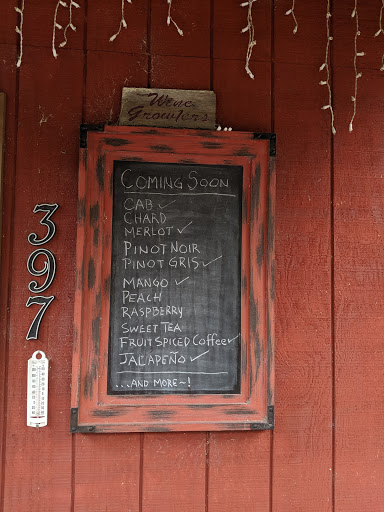 Wine
Growlers
COMING SOON
CAB ✓
CHARD
MERLOT ✓
PINOT NOIR
PINOT GRIS ✓
MANGO ✓
PEACH
RASPBERRY
SWEET TEA
FRUIT SPICED COFFEE ✓
JALAPEÑO ✓
...AND MORE~!
397